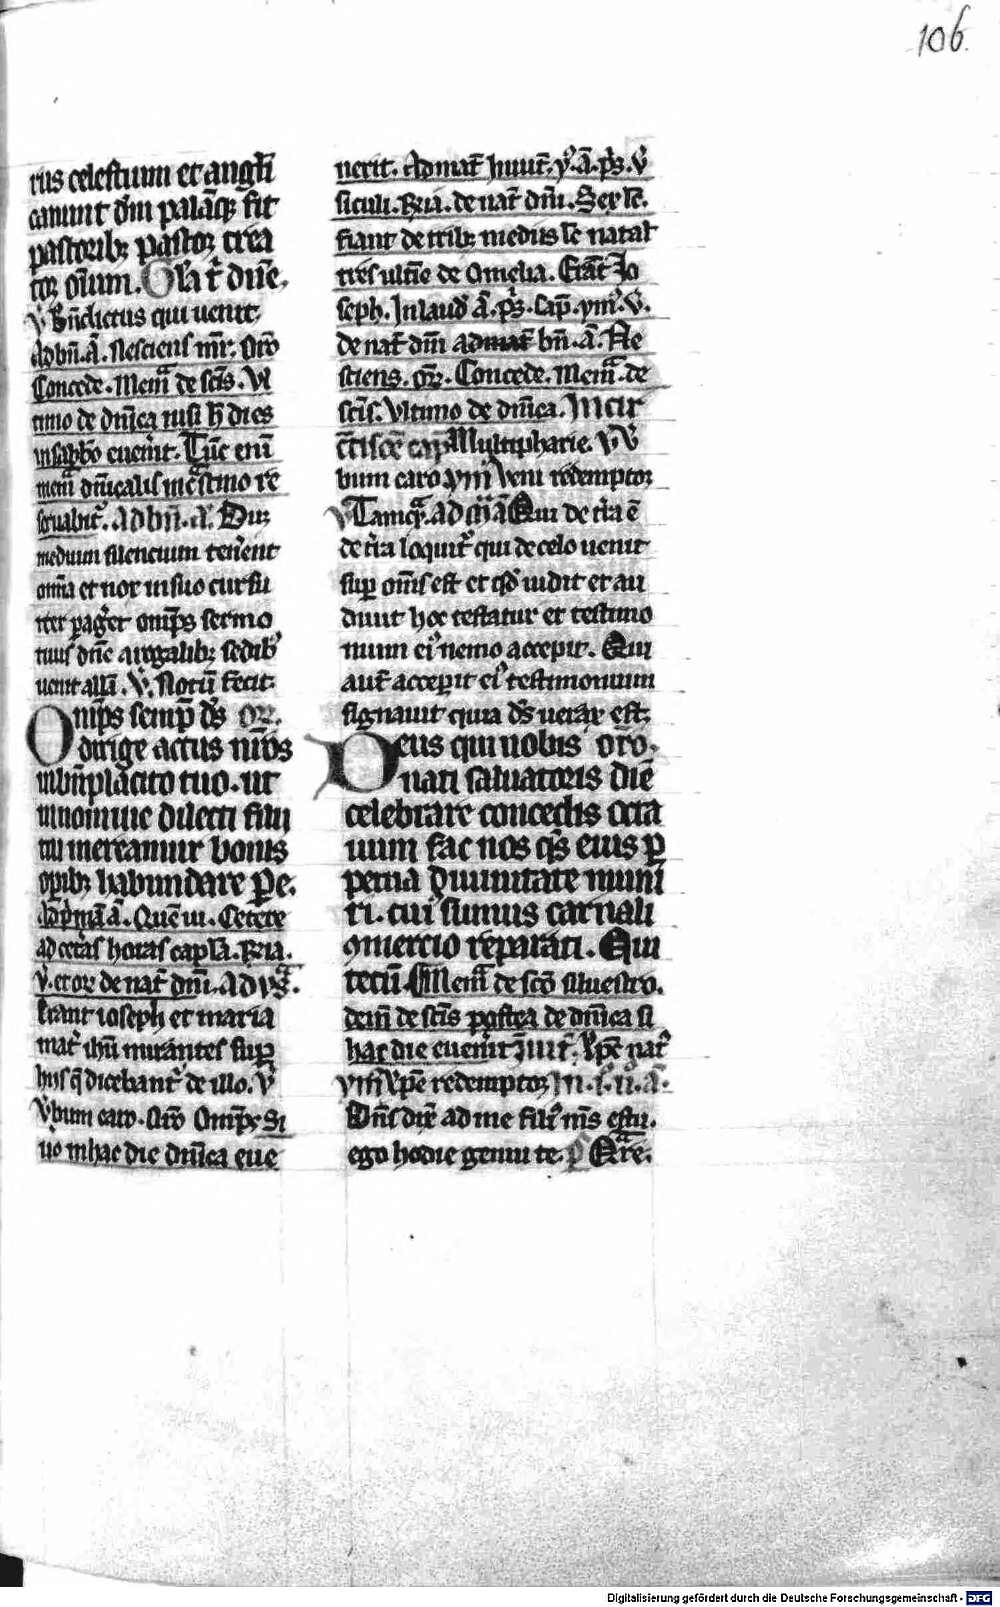 106
rus celestium et angli
canunt dm̄ palāq; fit
pastorib; pastor crea
tor oīum. Gl̄a t̄ dn̄e.
V̄ Bn̄dictus qui uenit.
Ad bn̄. ā. Nesciens mr̄. Orō
Concede. Mem̄ de sc̄is. Vl
timo de dn̄ica nisi h̄ dies
in sabbo euen̄it. Tūc eni
mem̄ dn̄icalis in cͣstino re
seruabit̄. Ad bn̄. ā. Dum
medium silencium ten̄ent
om̄ia et nox in suo cursu
iter ꝑaḡet om̄ps sermo
tuus dn̄e a regalib; sedib᷒
uenit all̄a. V̄. Notū fecit.
Om̄ps semp̄ ds̄ or̄.
dirige actus nr̄os
in bn̄placito tuo. ut
in nomine dilecti filii
tui mereamur bonis
oꝑib; habundare Pe.
Ad p̄mā ā. Quē ui. Cetere
ad cet̄as horas capl̄a. R̄ia.
V̄. et or̄ de nat̄ dn̄i. Ad vꝭ ā.
Erant ioseph et maria
mat̄ ih̄u mirantes suꝑ
his q̄ dicebant̄ de illo. V̄
V̄bum caro. Orō Om̄ps Si
u̇o in hac die dn̄ica eue
nerit. Ad mat̄ inuit̄. ym̄. ā. p̄s. V̄
siculi. R̄ia. de nat̄ dn̄i. Sex lc̄.
fiant de trib; mediis lc̄ natal̄
tres ultīe de Omelia. Erāt Jo
seph. In laud̄ ā. p̄s. Cap̄. ym̄. V̄.
de nat̄ dn̄i ad bn̄. ā. Ne
sciens. or̄. Concede. Mem̄. de
sc̄is. Vltimo de dn̄ica. In cir
cūcisōe cap̄ Multipharie. R̄ V̄
bum caro ym̄ Veni redemptor
V̄ Tamq̄. ad mā ā Qui de t̄ra ē
de t̄ra loquit̄ qui de celo uenit
suꝑ om̄s est et qd̄ uidit et au
diuit hoc testatur et testimo
nium ei᷒ nemo accepit. Qui
aut̄ acceꝑit ei᷒ testimonium
signauit quia ds̄ uerax est.
Deus qui nobis orō.
nati saluatoris diē
celebrare concedis octa
uum fac nos qs̄ eius ꝑ
petua diuinitate muni
ri. cui sumus carnali
ꝯmercio reparati. Qui
tecū. Mem̄ de sc̄o siluestro.
dein̄ de sc̄is postea de dn̄ica si
hac die euen̄it Inuit̄. Xp̄c nat᷒
ym̄ Xp̄e redemptor In. i. n̄. ā.
Dn̄s dix̄ ad me fili᷒ m̄s es tu.
ego hodie genui te. p̄ Q̄re.
Digitalisierung gefördert durch die Deutsche Forschungsgemeinschaft - DFG